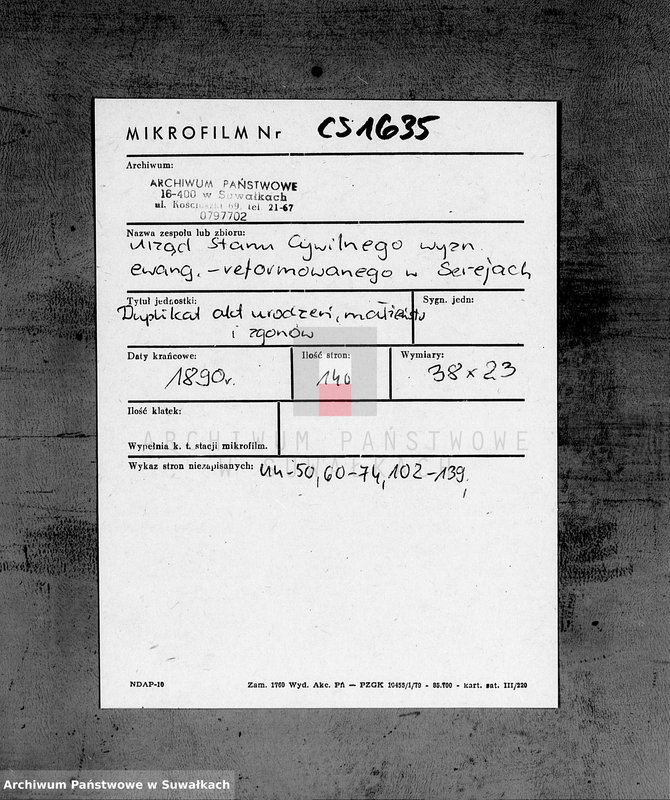 MIKROFILM Nr CS1635
Archiwum:
ARCHIWUM PAŃSTWOWE
16-400 w Suwałkach
ul. Kościuszki 69, tel. 21-67
0797702
Nazwa zespołu lub zbioru:
Urząd Stanu Cywilnego wyzn.
ewang.-reformowanego w Serejach
Tytuł jednostki:
Duplikat akt urodzeń, małżeństw
i zgonów
Sygn. jedn:
Daty krańcowe:
1890r.
Ilość stron:
140
Wymiary:
38 x 23
Ilość klatek:
Wypełnia k. t. stacji mikrofilm.
ARCHIWUM PAŃSTWOWE
W SUWAŁKACH
Wykaz stron niezapisanych: 44-50, 60-74, 102-139.
NDAP-10
Zam. 1760 Wyd. Akc. PŁ — PZGK 10455/1/79 - 85.700 - kart. sat. III/220
Archiwum Państwowe w Suwałkach